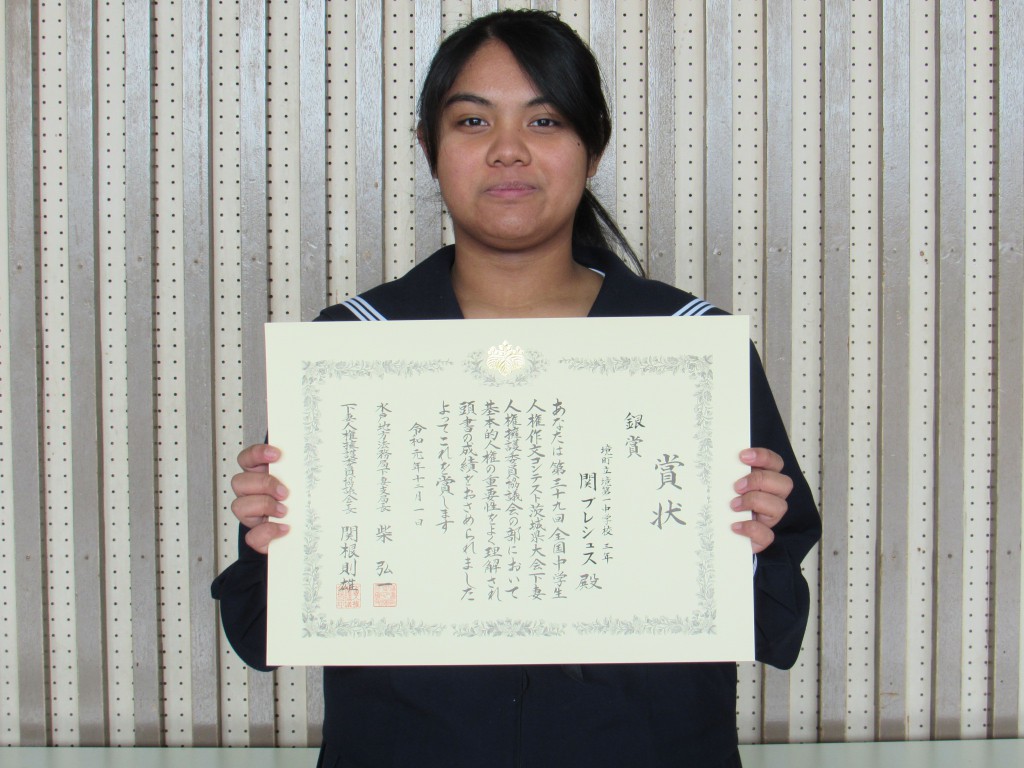 賞状
銀賞
境町立境第一中学校 三年
関プレシュス 殿
あなたは第三十九回全国中学生
人権作文コンテスト茨城県大会下妻
人権擁護委員協議会の部において
基本的人権の重要性をよく理解され
頭書の成績をおさめられました
よってこれを賞します
令和元年十二月一日
水戸地方法務局下妻支局長 柴 弘一
下妻人権擁護委員協議会長 関根則雄